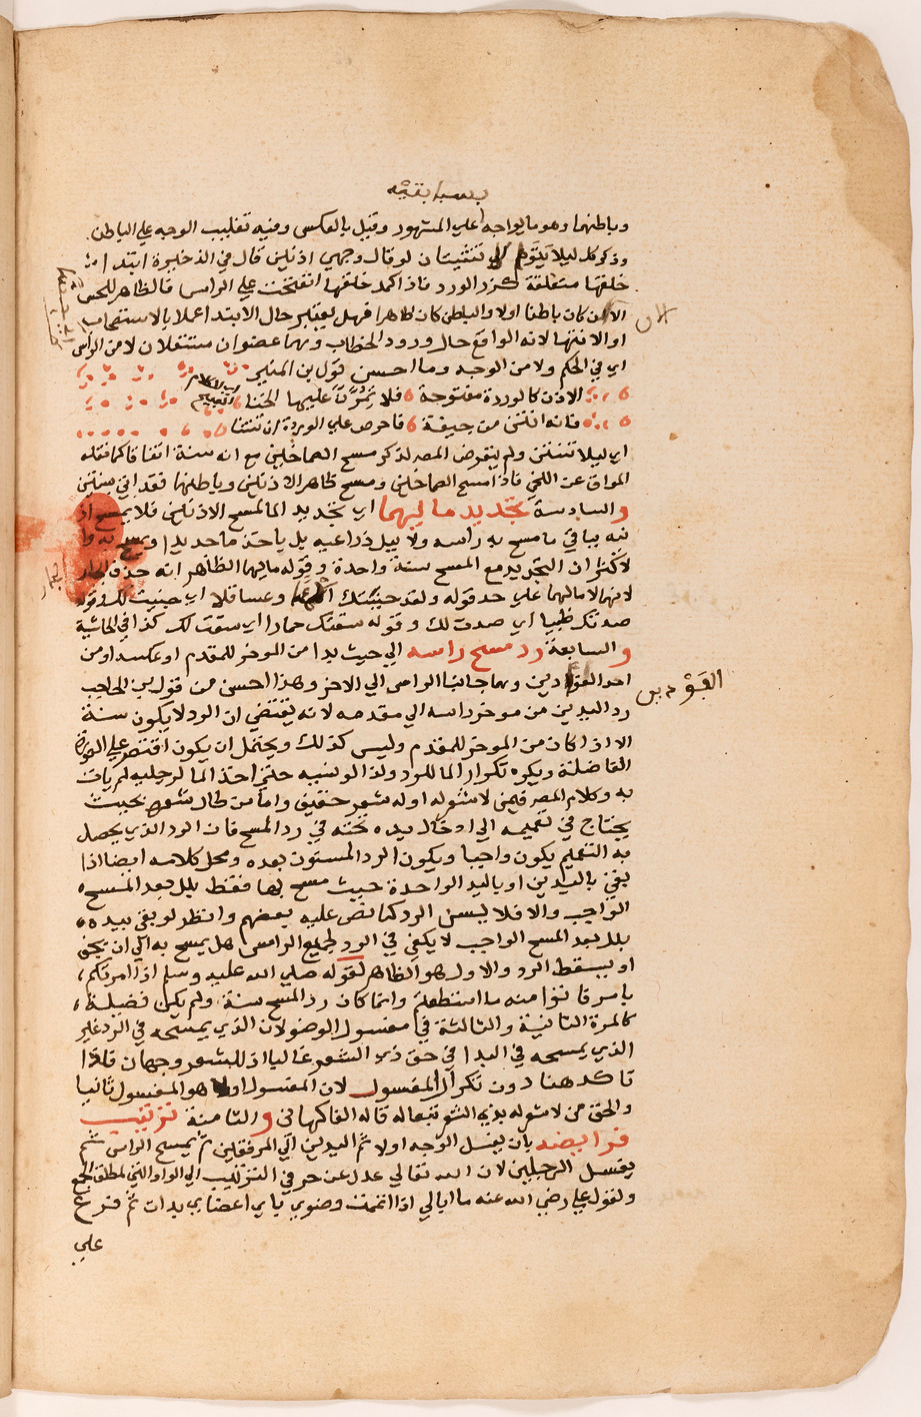 بسبابتيه
وباطنهما وهو ما يواجه اعلي المشهور وقيل بالعكس وفيه تغليب الوجه علي الباطن
وذكر كل ليلا يتوهم تثنيتان لو قال وجهي اذنين قال في الذخيرة ابتدا
خلقها منغلقة كزر الورد فاذا كمل خلقها انفتحت علي الراس فالظاهر للحس
الان كان باطنا اولا والباطن كان ظاهرا فهل يعتبر حال الابتدا عملا بالاستصحاب
او الانتها لانه الواقع حال ورود الخطاب وهما عضوان مستقلان لا من الراس
اي في الحكم ولا من الوجه وما احسن قول بن المنير
الاذن كالوردة مفتوحة فلا تمرن عليها الخنا
فانه انتن من جيفة فاحرص علي الوردة ان تنتنا
اي ليلا تنتنن ولم يتعرض المصـ لذكر مسح الصماخين مع انه سنة اتفاقا كما نقله
المواق عن اللخمي فاذا مسح الصماخين ومسح ظاهر الاذنين وباطنهما فقد اتي بسنتين
والسادسة تجديد مايهما اي تجديد الما لمسح الاذنين فلا يمسح اذ
نيه بباقي ما مسح به راسه ولا ببلل ذراعيه بل ياخذ ما جديدا ويمسح به وا
لاكثر ان التجديد مع المسح سنة واحدة وقوله مايهما الظاهر انه حذف الجار
لانهما لا ما لهما علي حد قوله ولقد جنيتك اكمؤا وعساقلا اي جنيت لك وقوله
صدتك ظبيا اي صدت لك وقوله سقتك حمارا اي سقت لك كذا في الحاشية
والسابعة رد مسح راسه الي حيث بدا من الموخر للمقدم او عكسه او من
احد الفودين وهما جانبا الراس الي الاخر وهذا احسن من قول بن الحاجب
القوم بن
رد اليدين من موخر راسه الي مقدمه لانه يقتضي ان الرد لا يكون سنة
الا اذا كان من الموخر للمقدم وليس كذلك ويحتمل ان يكون اقتصر علي الصورة
الفاضلة ويكره تكرار الما للرد ولذا لو نسيه حتي اخذ الما لرجليه لم يات
به وكلام المصـ فيمن لا شعر له او له شعر خفيف واما من طال شعره بحيث
يحتاج في تعميمه الي ادخال يده تحته في رد المسح فان الرد الذي يحصل
به التعميم يكون واجبا ويكون الرد المسنون بعده ومحل كلامه ايضا اذا
بقي باليدين او باليد الواحدة حيث مسح بها فقط بلل بعد المسح
الواجب والا فلا يسن الرد كما نص عليه بعضهم وانظر لو بقي بيده
بلل بعد المسح الواجب لا يكفي في الرد لجميع الراس هل يمسح به الي ان يجف
او يسقط الرد والاول هو الظاهر لقوله صلي الله عليه وسلم اذا امرتكم
بامر فاتوا منه ما استطعتم وانما كان رد المسح سنة ولم يكن فضيلة
كالمرة الثانية والثالثة في مغسول الوضو لان الذي يمسحه في الرد غير
الذي يمسحه في البدا في حق ذي الشعر غالبا اذ للشعر وجهان فلذا
تاكد هنا دون تكرار المغسول لان المغسول اولا هو المغسول ثانيا
والحق من لا شعر له بذي الشعر تبعا له قاله الفاكهاني والثامنة ترتيب
فرايضه بان يغسل الوجه اولا ثم اليدين الي المرفقين ثم يمسح الراس ثم
يغسل الرجلين لان الله تعالي عدل عن حرفي الترتيب الي الواو التي لمطلق الجمع
ولقول علي رضي الله عنه ما ابالي اذا اتممت وضوي باي اعضاي بدات ثم فرع
علي